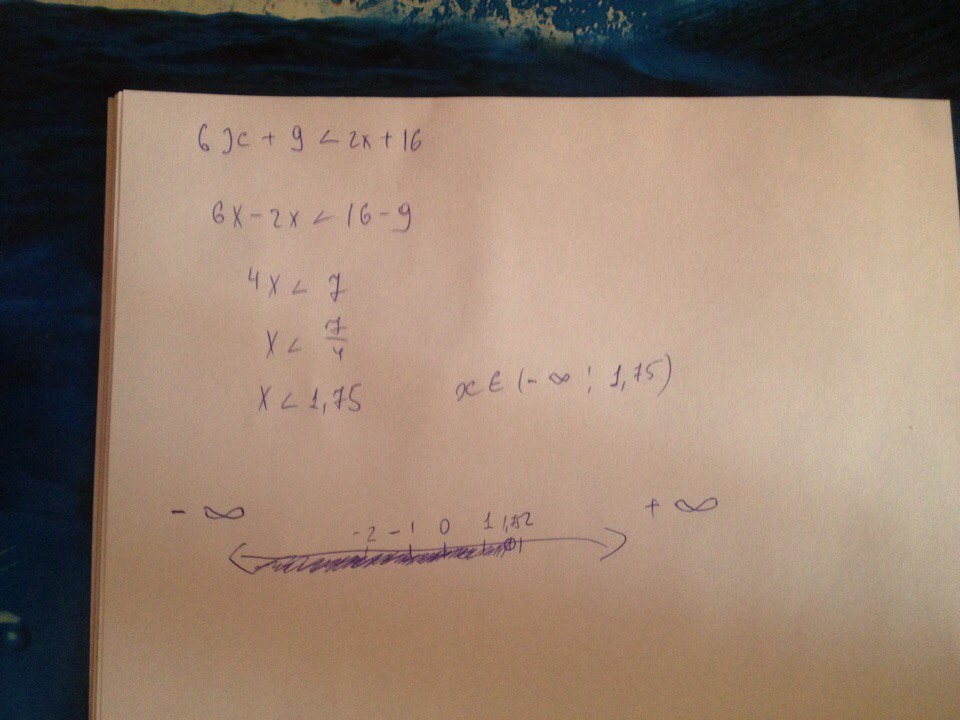 6x + 9 < 2x + 16
6x - 2x < 16 - 9
4x < 7
x < 7/4
x < 1,75
x ∈ (-∞ ; 1,75)
- ∞ + ∞
-2 -1 0 1 1,75 2